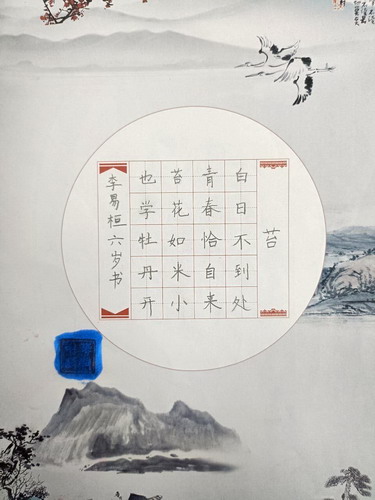 苔
白日不到处
青春恰自来
苔花如米小
也学牡丹开
李易桓六岁书